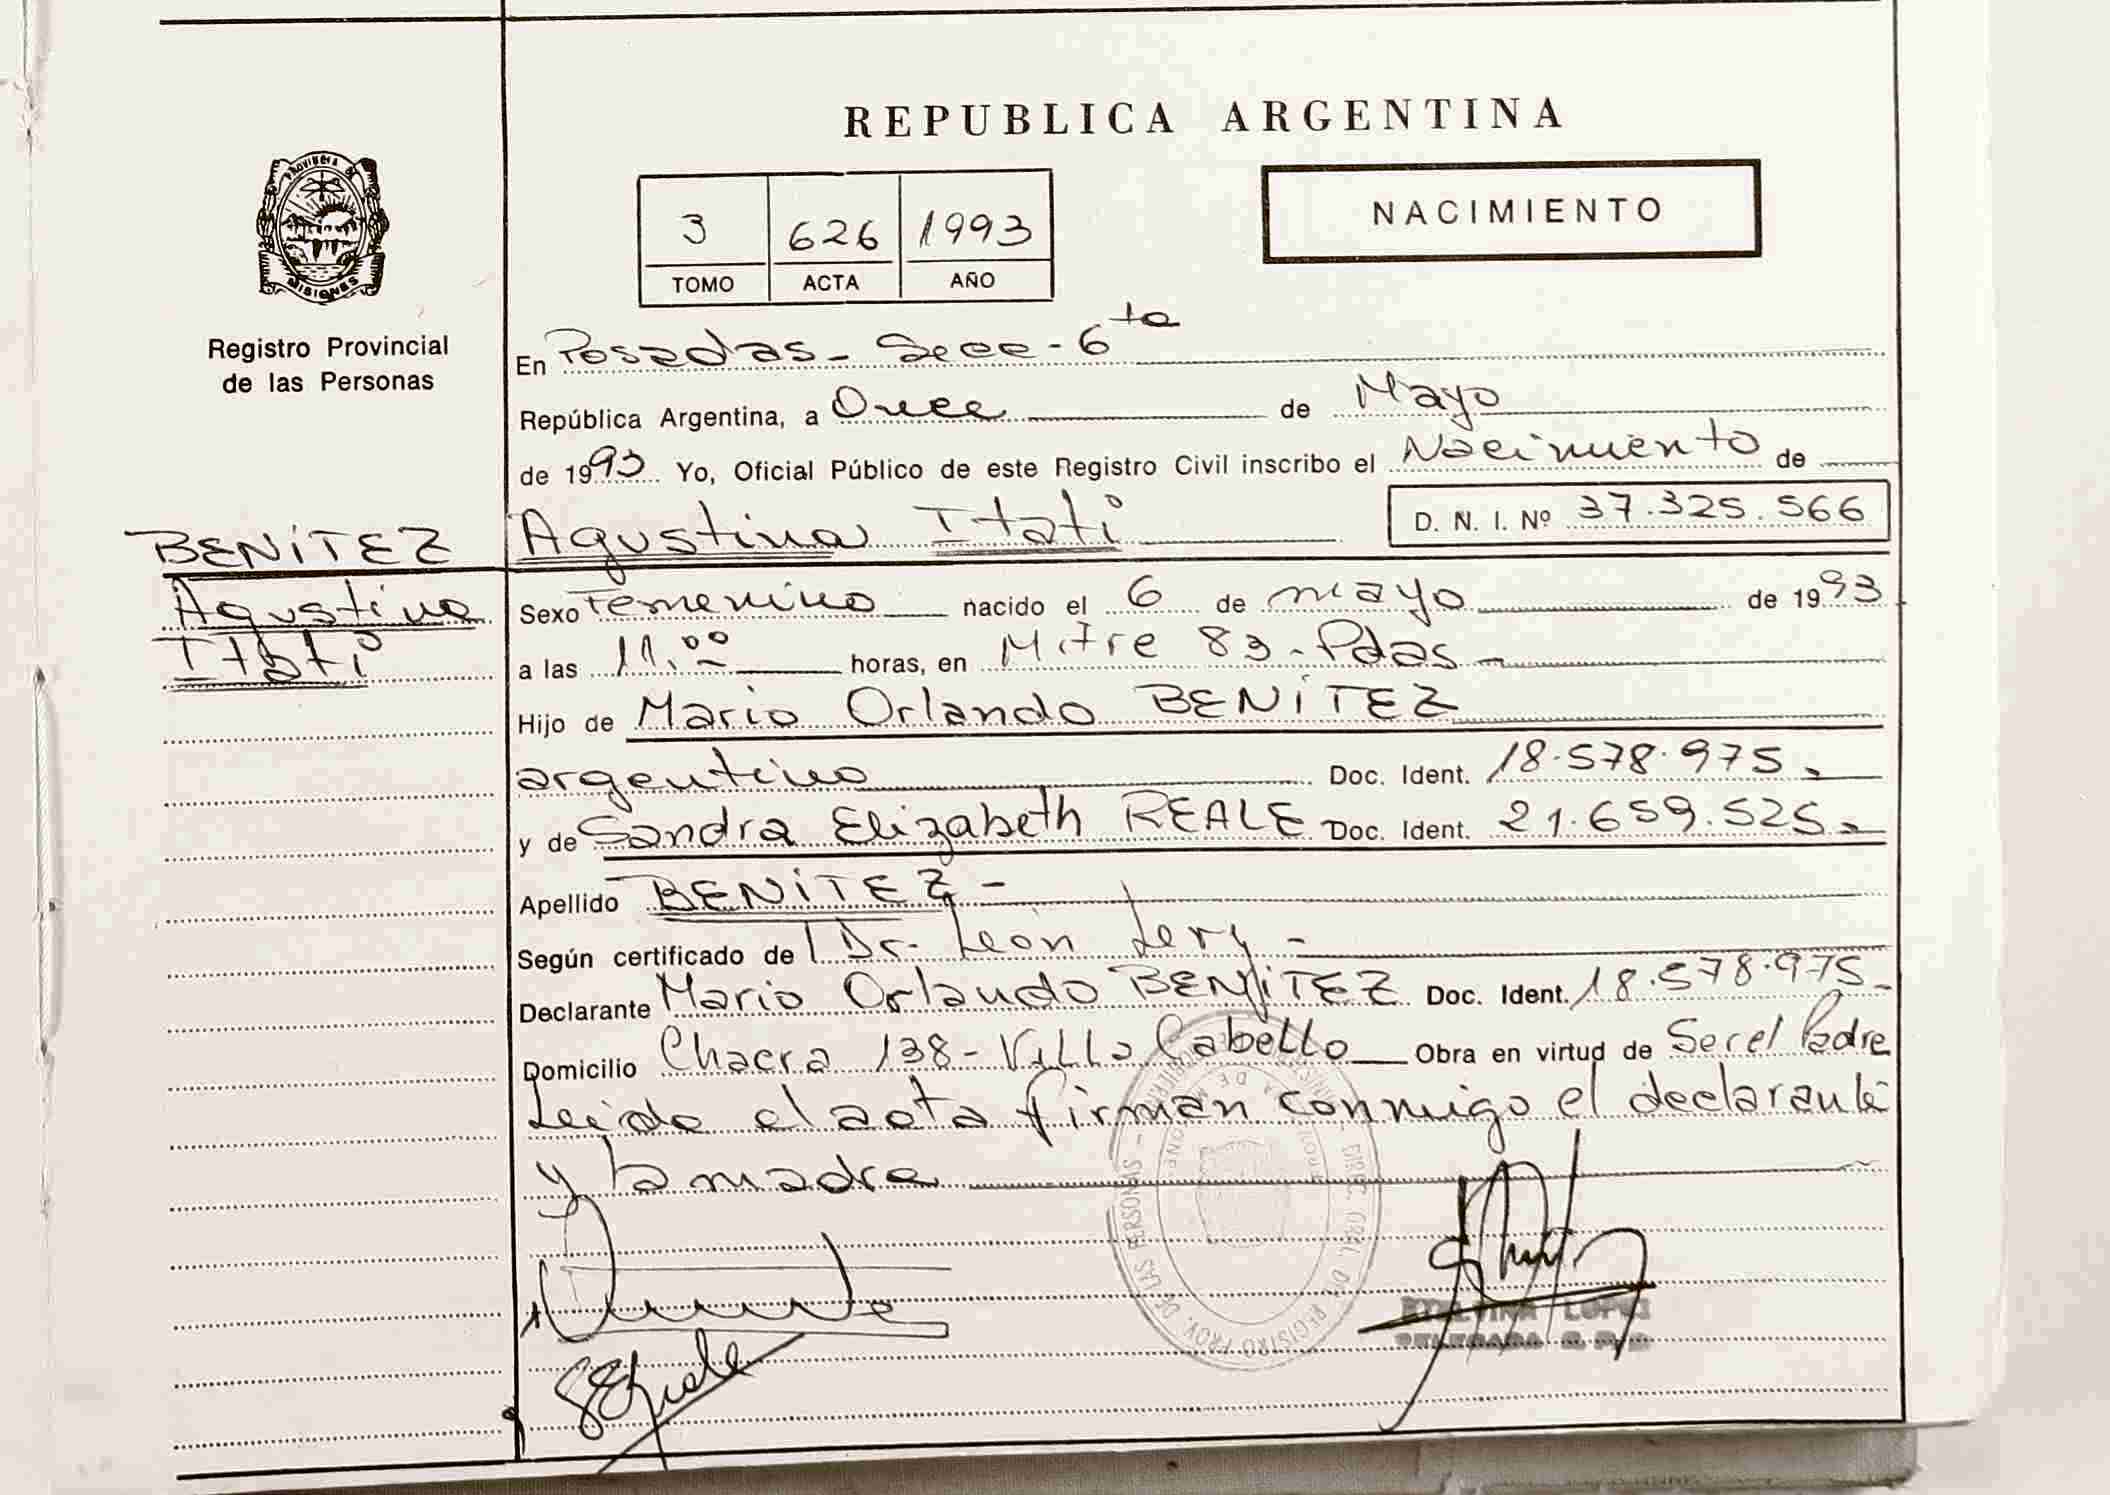 REPUBLICA ARGENTINA
PROVINCIA DE MISIONES
Registro Provincial
de las Personas
3 626 1993
TOMO ACTA AÑO
NACIMIENTO
En Posadas - Secc - 6ta
República Argentina, a Once de Mayo
de 1993 Yo, Oficial Público de este Registro Civil inscribo el Nacimiento de
BENÍTEZ
Agustina Itatí
Agustina Itatí
D. N. I. Nº 37.325.566
Sexo Femenino nacido el 6 de mayo de 1993
a las 11.00 horas, en Mitre 83 - Pdas -
Hijo de Mario Orlando BENÍTEZ
argentino Doc. Ident. 18.578.975.-
y de Sandra Elizabeth REALE Doc. Ident. 21.659.525.-
Apellido BENÍTEZ -
Según certificado de Dr. León -
Declarante Mario Orlando BENÍTEZ Doc. Ident. 18.578.975 -
Domicilio Chacra 138 - Villa Cabello Obra en virtud de Ser el Padre
Leída el acta firman conmigo el declarante
y la madre
DIREC. GRAL. DEL REGISTRO PROV. DE LAS PERSONAS
LOPEZ
DELEGADA